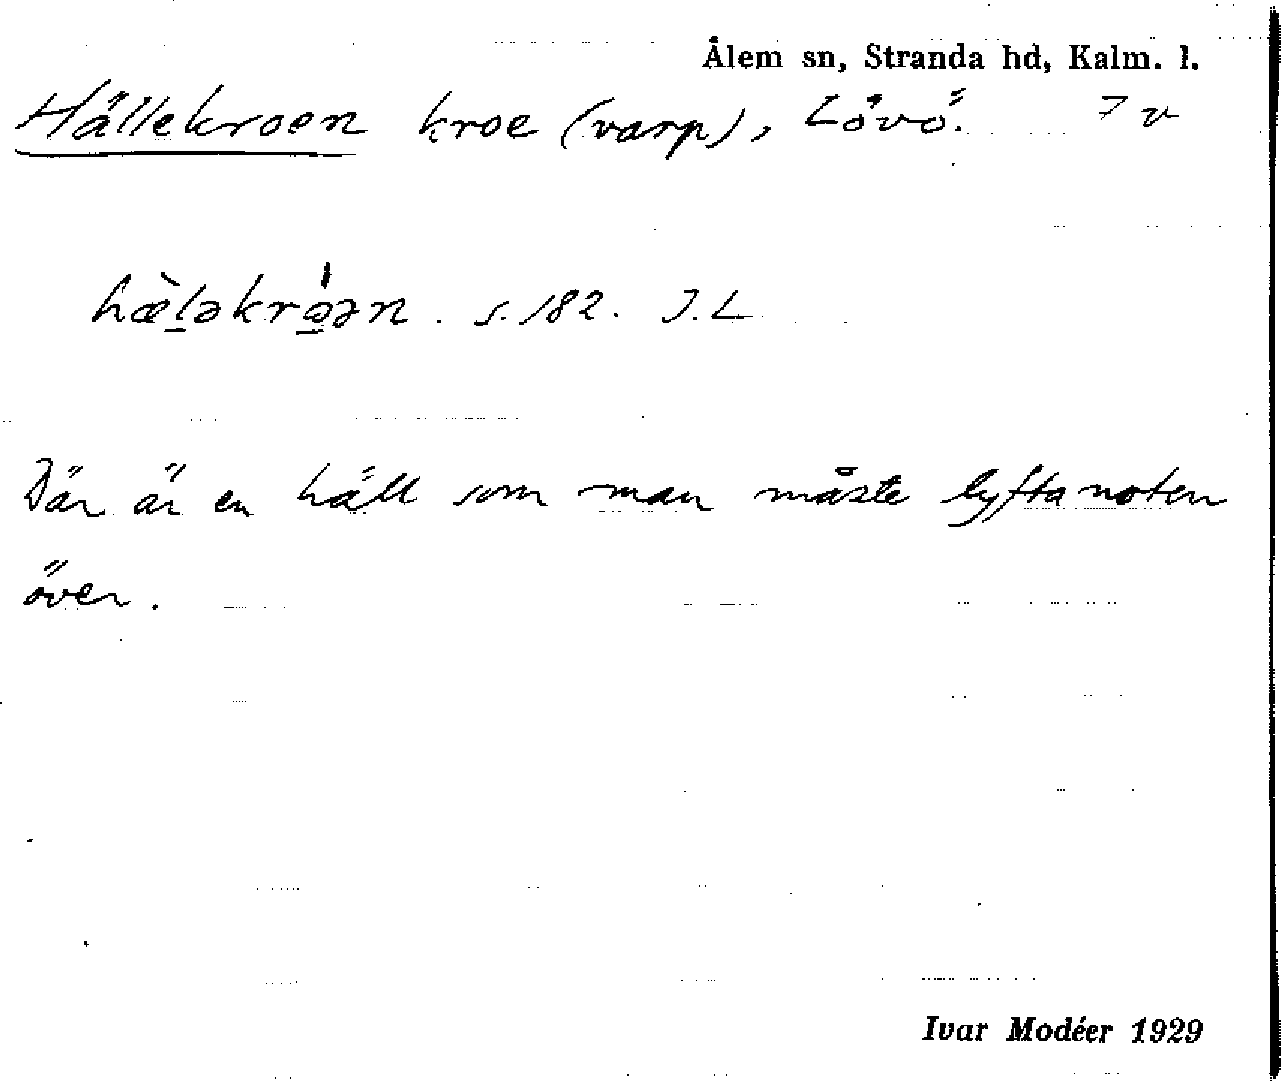 Ålem sn, Stranda hd, Kalm. l.
Hällekroen kroe (varp), Lövö. 7 v
hæ̀l̠əkrò̠ən. s. 182. J.L
Där är en häll som man måste lyfta noten
över.
Ivar Modéer 1929